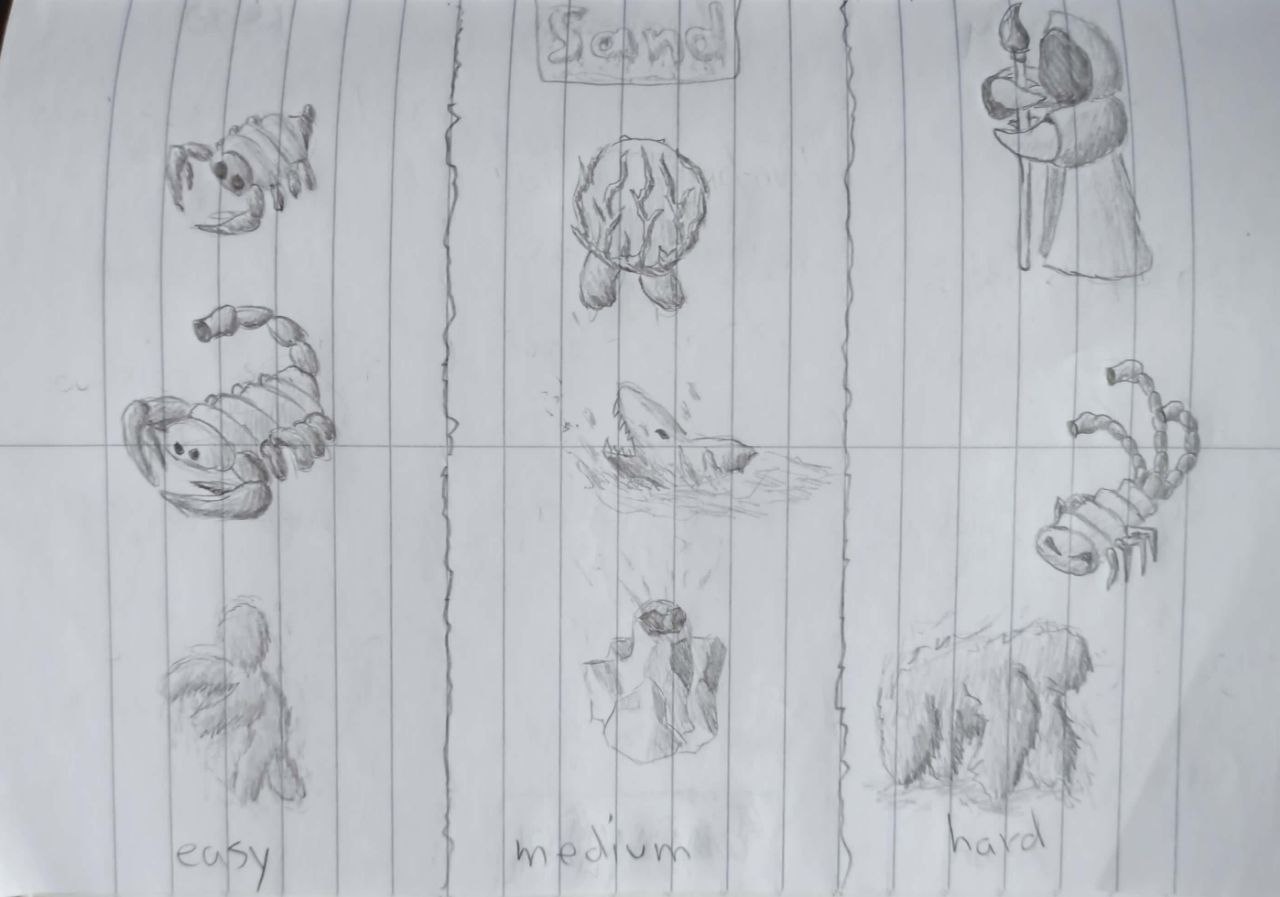 Sand
easy
medium
hard